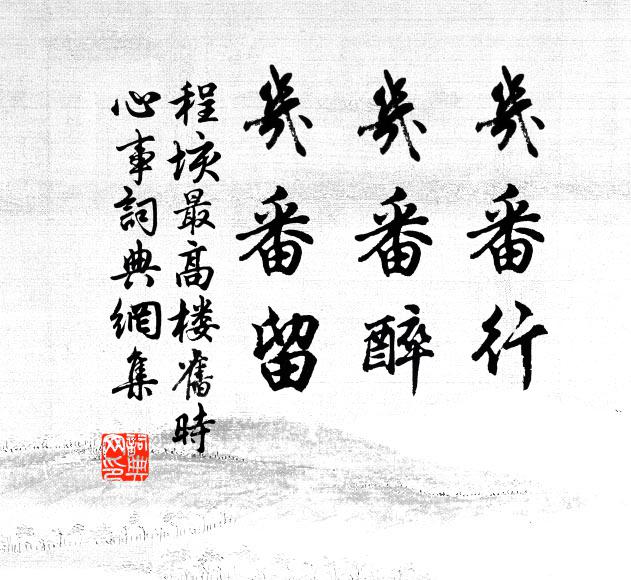 幾番行
幾番醉
幾番留
程垓最高楼舊時
心事詞典網集
詞典
网印